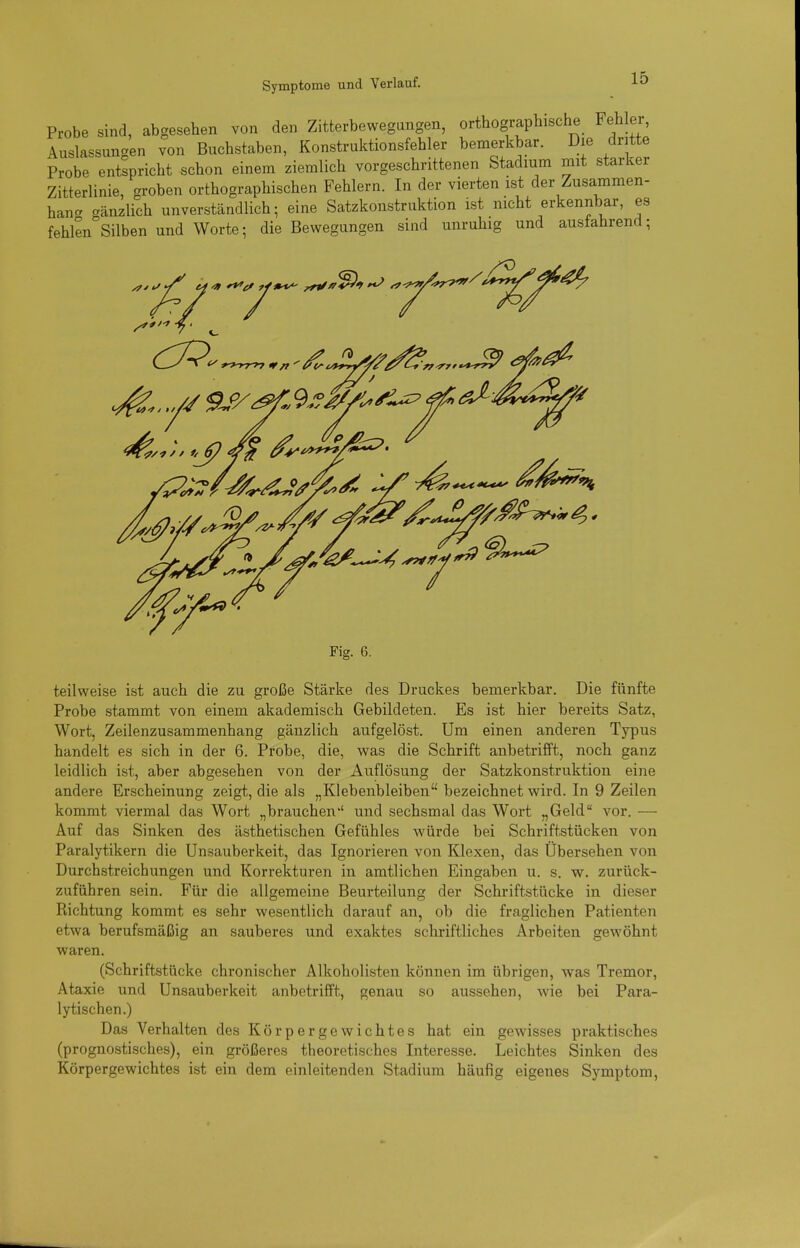 Symptome und Verlauf.
15
Probe sind, abgesehen von den Zitterbewegungen, orthographische Fehler,
Auslassungen von Buchstaben, Konstruktionsfehler bemerkbar. Die dritte
Probe entspricht schon einem ziemlich vorgeschrittenen Stadium mit starker
Zitterlinie, groben orthographischen Fehlern. In der vierten ist der Zusammen-
hang gänzlich unverständlich; eine Satzkonstruktion ist nicht erkennbar, es
fehlen Silben und Worte; die Bewegungen sind unruhig und ausfahrend;
Fig. 6.
teilweise ist auch die zu große Stärke des Druckes bemerkbar. Die fünfte
Probe stammt von einem akademisch Gebildeten. Es ist hier bereits Satz,
Wort, Zeilenzusammenhang gänzlich aufgelöst. Um einen anderen Typus
handelt es sich in der 6. Probe, die, was die Schrift anbetrifft, noch ganz
leidlich ist, aber abgesehen von der Auflösung der Satzkonstruktion eine
andere Erscheinung zeigt, die als „Klebenbleiben“ bezeichnet wird. In 9 Zeilen
kommt viermal das Wort „brauchen“ und sechsmal das Wort „Geld“ vor. —
Auf das Sinken des ästhetischen Gefühles würde bei Schriftstücken von
Paralytikern die Unsauberkeit, das Ignorieren von Klexen, das Übersehen von
Durchstreichungen und Korrekturen in amtlichen Eingaben u. s. w. zurück-
zuführen sein. Für die allgemeine Beurteilung der Schriftstücke in dieser
Richtung kommt es sehr wesentlich darauf an, ob die fraglichen Patienten
etwa berufsmäßig an sauberes und exaktes schriftliches Arbeiten gewöhnt
waren.
(Schriftstücke chronischer Alkoholisten können im übrigen, was Tremor,
Ataxie und Unsauberkeit anbetrifft, genau so aussehen, wie bei Para-
lytischen.)
Das Verhalten des Körpergewichtes hat ein gewisses praktisches
(prognostisches), ein größeres theoretisches Interesse. Leichtes Sinken des
Körpergewichtes ist ein dem einleitenden Stadium häufig eigenes Symptom,